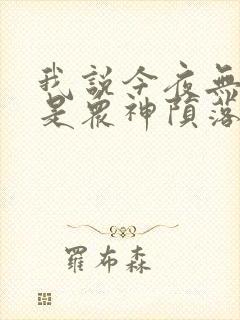 我說今夜無
是眾神隕落
羅布森